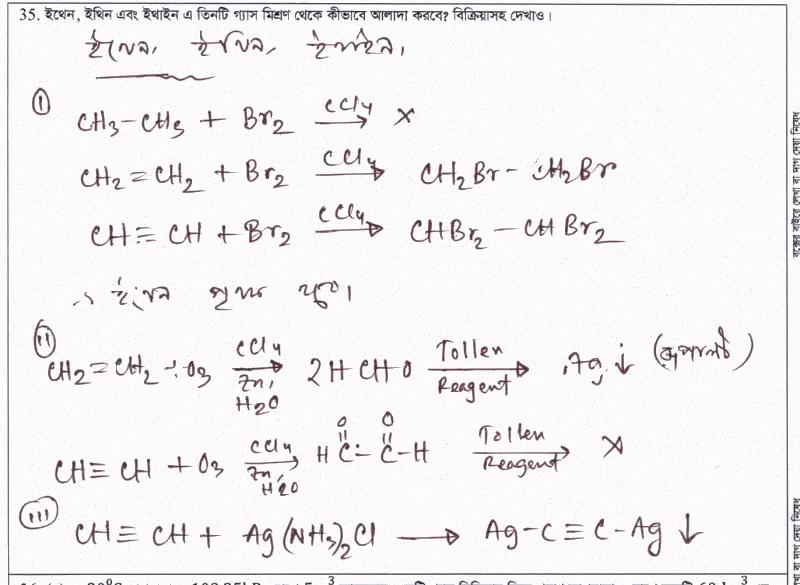 35. ইথেন, ইথিন এবং ইথাইন এ তিনটি গ্যাস মিশ্রণ থেকে কীভাবে আলাদা করবে? বিক্রিয়াসহ দেখাও।
ইথেন, ইথিন, ইথাইন।
(i) CH3-CH3 + Br2 CCl4 → ×
CH2=CH2 + Br2 CCl4 → CH2Br - CH2Br
CH≡CH + Br2 CCl4 → CHBr2 - CHBr2
∴ ইথেন পৃথক হবে।
(ii) CH2=CH2 + O3 CCl4 → Zn, H2O 2HCHO Tollen → Reagent Ag ↓
CH≡CH + O3 CCl4 → Zn, H2O H-C(=O)-C(=O)-H Tollen → Reagent ×
(iii) CH≡CH + Ag(NH3)2Cl → Ag-C≡C-Ag ↓